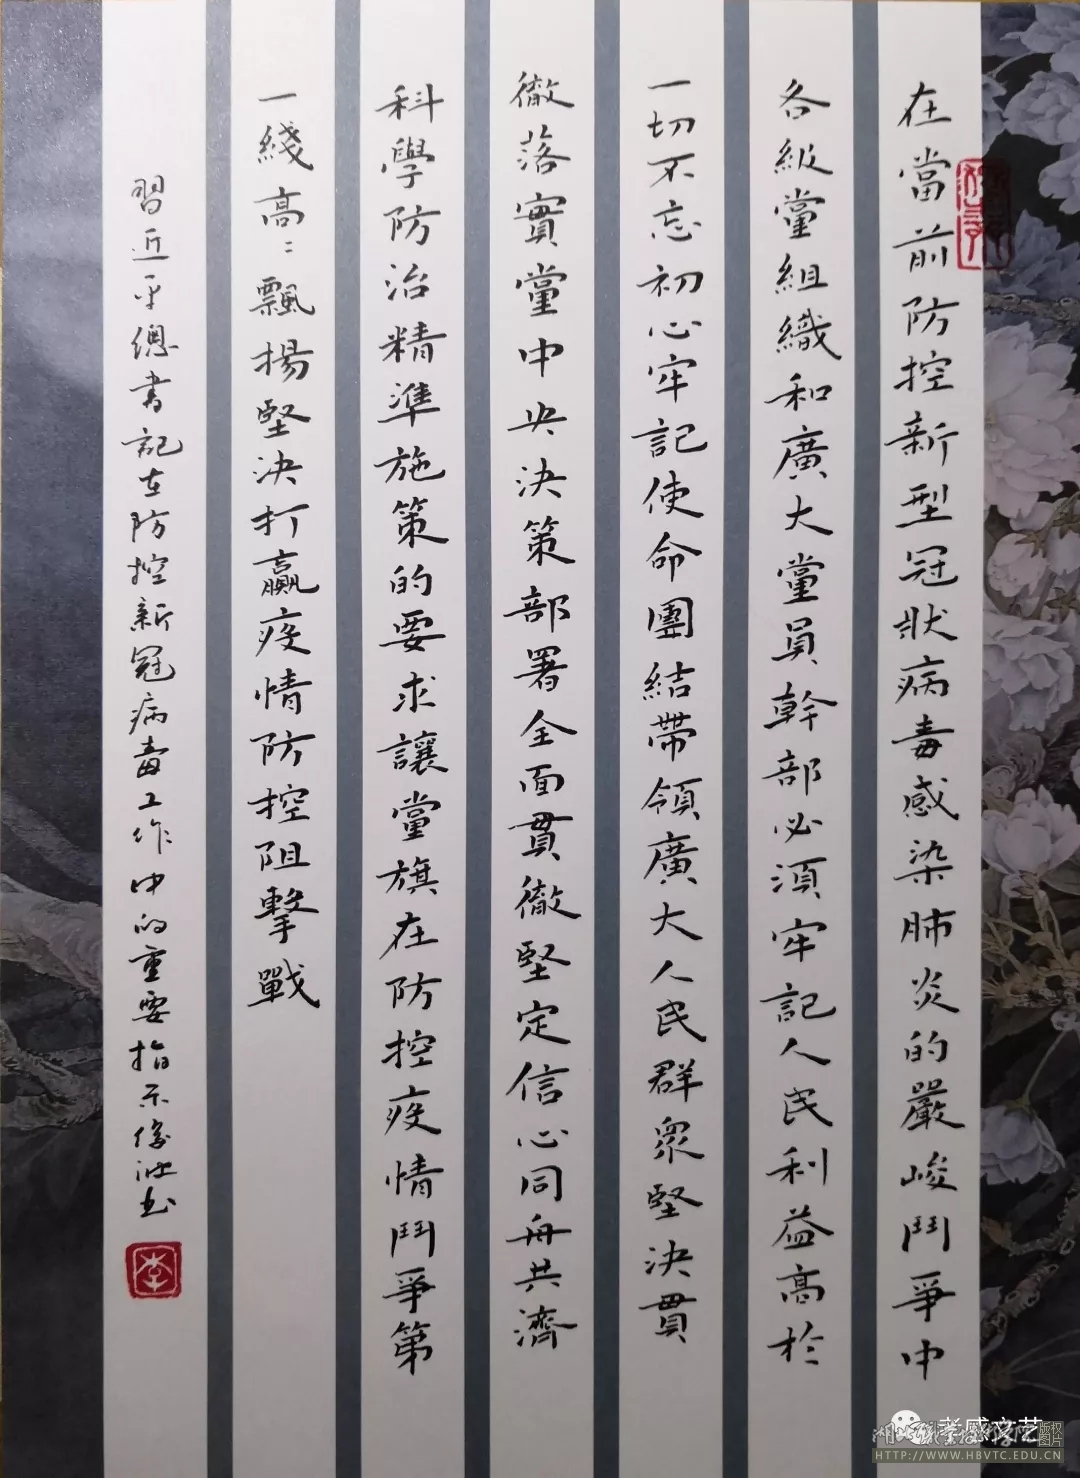 在當前防控新型冠狀病毒感染肺炎的嚴峻鬥爭中
各級黨組織和廣大黨員幹部必須牢記人民利益高於
一切不忘初心牢記使命團結帶領廣大人民群衆堅決貫
徹落實黨中央決策部署全面貫徹堅定信心同舟共濟
科學防治精準施策的要求讓黨旗在防控疫情鬥爭第
一綫高〻飄揚堅決打贏疫情防控阻擊戰
習近平總書記在防控新冠病毒工作中的重要指示
書
李
孝感文艺
版权图片
HTTP://WWW.HBVTC.EDU.CN